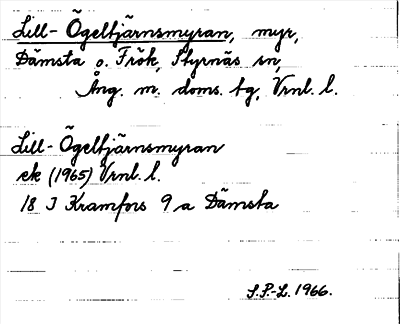 Lill-Ögeltjärnsmyran, myr,
Dämsta o. Frök, Styrnäs sn,
Ång. m. doms. tg, Vrnl. l.
Lill-Ögeltjärnsmyran
ek (1965) Vrnl. l.
18 I Kramfors 9 a Dämsta
S.P.-L. 1966.